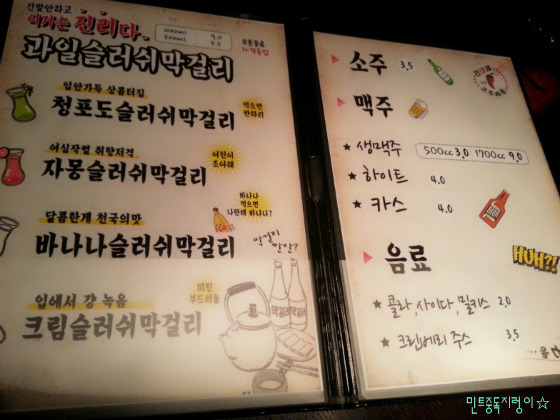 긴말안하고
진리다.
1000ml 9.0
500ml 5.5
모든종류
가격동일
과일슬러쉬막걸리
입안가득 상콤터짐
청포도슬러쉬막걸리
먹으면
반하리
여심작렬 취향저격
자몽슬러쉬막걸리
어린이
조아해
달콤한게 천국의맛
바나나슬러쉬막걸리
바나나
먹으면
나한테 바나나?
막걸리
한잔?
입에서 걍 녹음
크림슬러쉬막걸리
미친
부드러움
막걸리 막걸리
소주 3.5
맥주
생맥주 500cc 3.0 1700cc 9.0
하이트 4.0
카스 4.0
음료
HUH?!
콜라, 사이다, 밀키스 2.0
크린베리 주스 3.5
민트중독지렁이☆